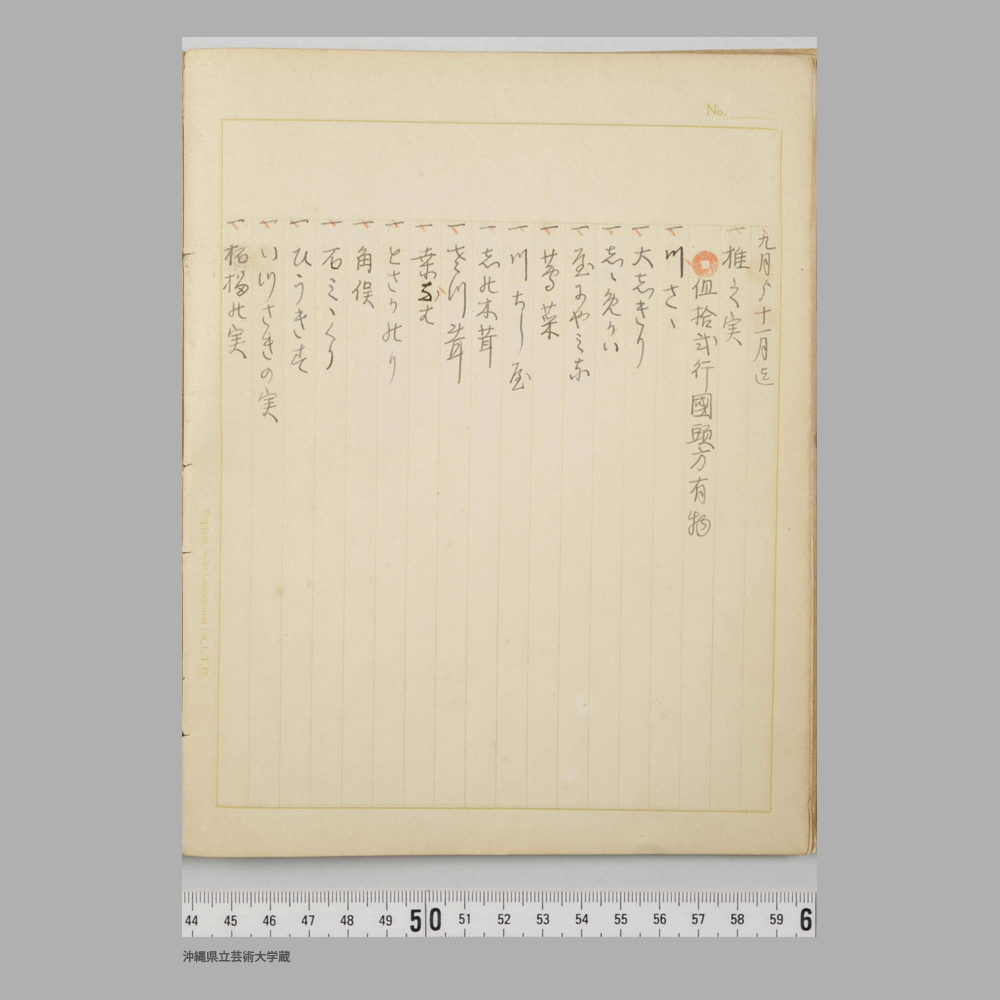 No.
九月ゟ十一月迄
一 椎之実
伹拾弐行國頭方有物
一 川さゝ
一 大志きり
一 志ゝ免かい
一 屋まやミな
一 莺菜
一 川ちし屋
一 志めし茸
一 き川茸
一 桑なは
一 とさかのり
一 角俣
一 石ミゝくり
一 ひうきす
一 い川さきの実
一 柘榴の実
44 45 46 47 48 49 50 51 52 53 54 55 56 57 58 59 6
沖縄県立芸術大学蔵